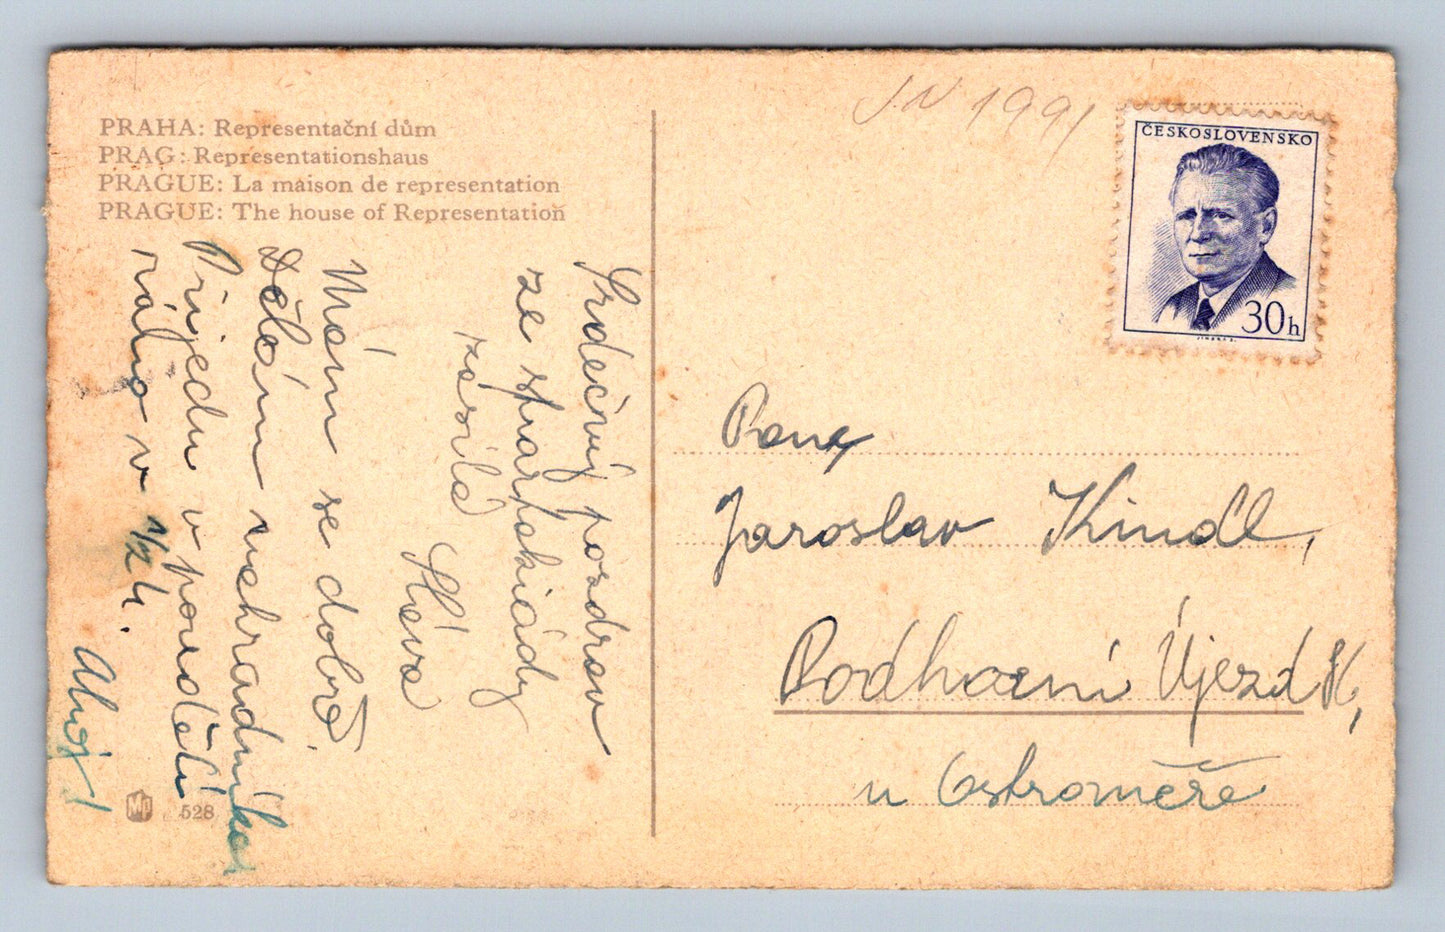 PRAHA: Representační dům
PRAG: Representationshaus
PRAGUE: La maison de representation
PRAGUE: The house of Representation
Srdečný pozdrav
ze spartakiády
zasílá
Sláva
Mám se dobře.
Dělám vehradníka
Přijedu v pondělí
ráno v 1/2 4.
Ahoj!
528
J.N 1991
ČESKOSLOVENSKO
30h
Pan
Jaroslav Kindl,
Podhorní Újezd
u Ostroměře